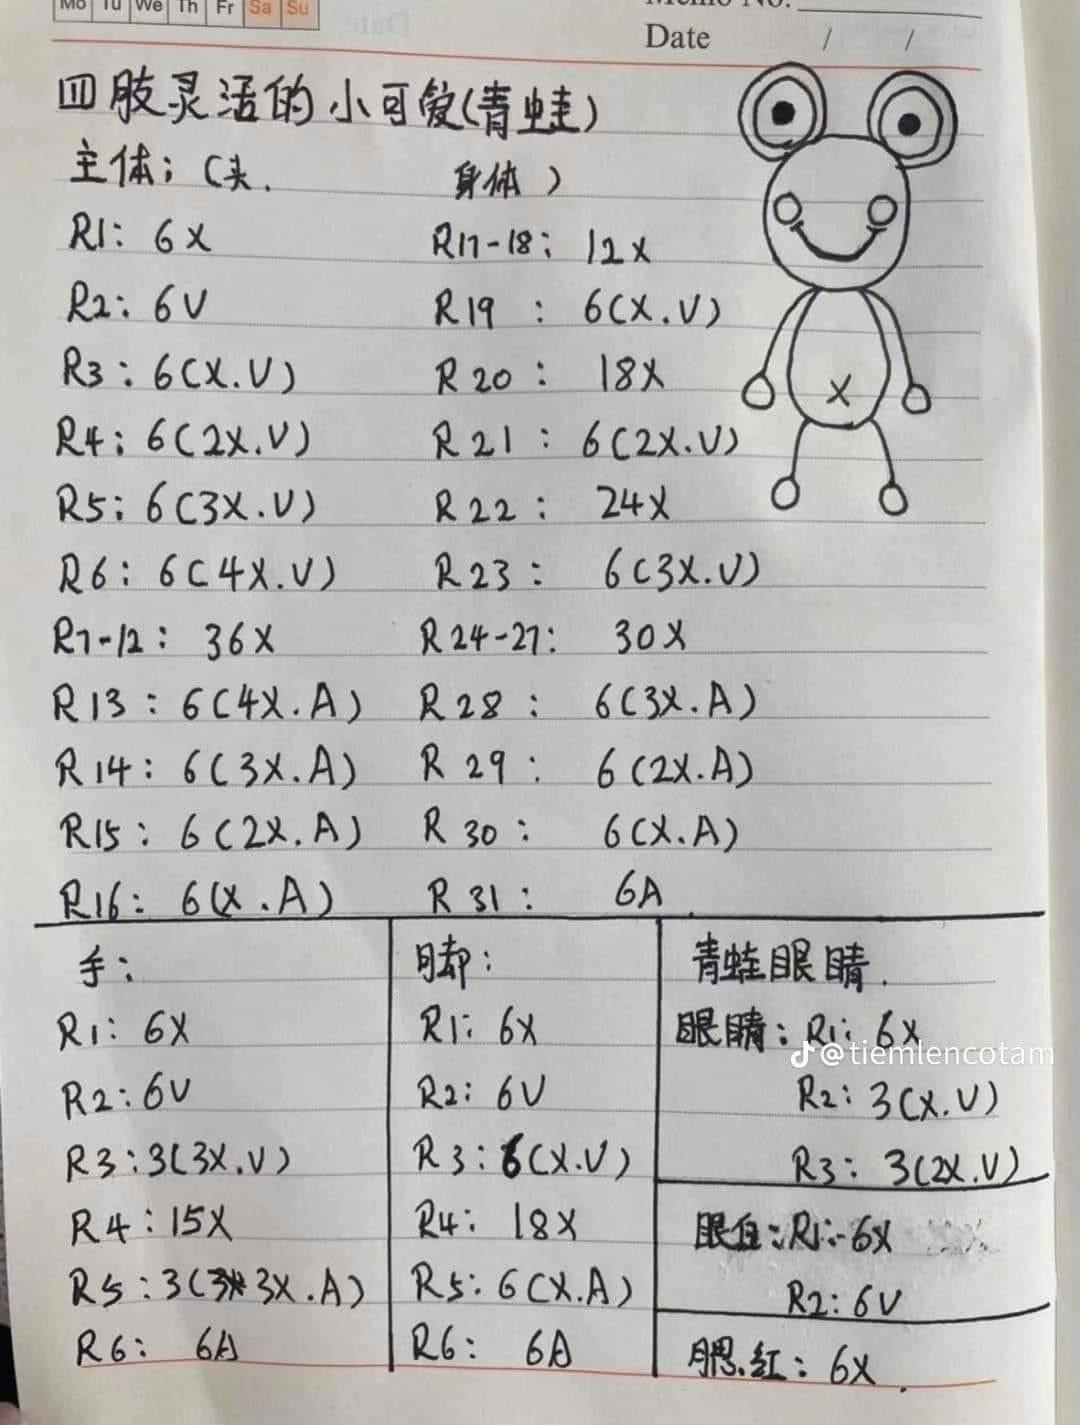 Mo Tu We Th Fr Sa Su
Memo No.
Date / /
四肢灵活的小可爱(青蛙)
主体：(头.
R1: 6X
R2: 6V
R3: 6(X.V)
R4: 6(2X.V)
R5: 6(3X.V)
R6: 6(4X.V)
R7-12: 36X
R13: 6(4X.A)
R14: 6(3X.A)
R15: 6(2X.A)
R16: 6(X.A)
身体)
R17-18: 12X
R19: 6(X.V)
R20: 18X
R21: 6(2X.V)
R22: 24X
R23: 6(3X.V)
R24-27: 30X
R28: 6(3X.A)
R29: 6(2X.A)
R30: 6(X.A)
R31: 6A
X
手:
R1: 6X
R2: 6V
R3: 3(3X.V)
R4: 15X
R5: 3(3X.A)
R6: 6A
脚:
R1: 6X
R2: 6V
R3: 6(X.V)
R4: 18X
R5: 6(X.A)
R6: 6A
青蛙眼睛.
眼睛: R1: 6X
R2: 3(X.V)
R3: 3(2X.V)
眼白: R1: 6X
R2: 6V
腮红: 6X.
@tiemlencotam